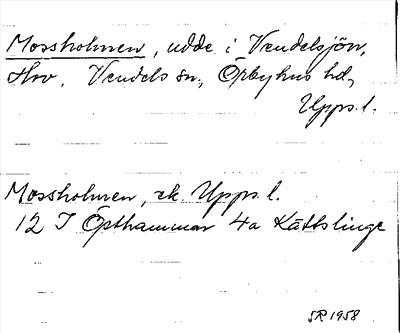 Mossholmen, udde i Vendelsjön,
Hov, Vendels sn., Örbyhus hd,
Upps. l.
Mossholmen, ek. Upps. l.
12 I Östhammar 4a Kättslinge
SR 1958